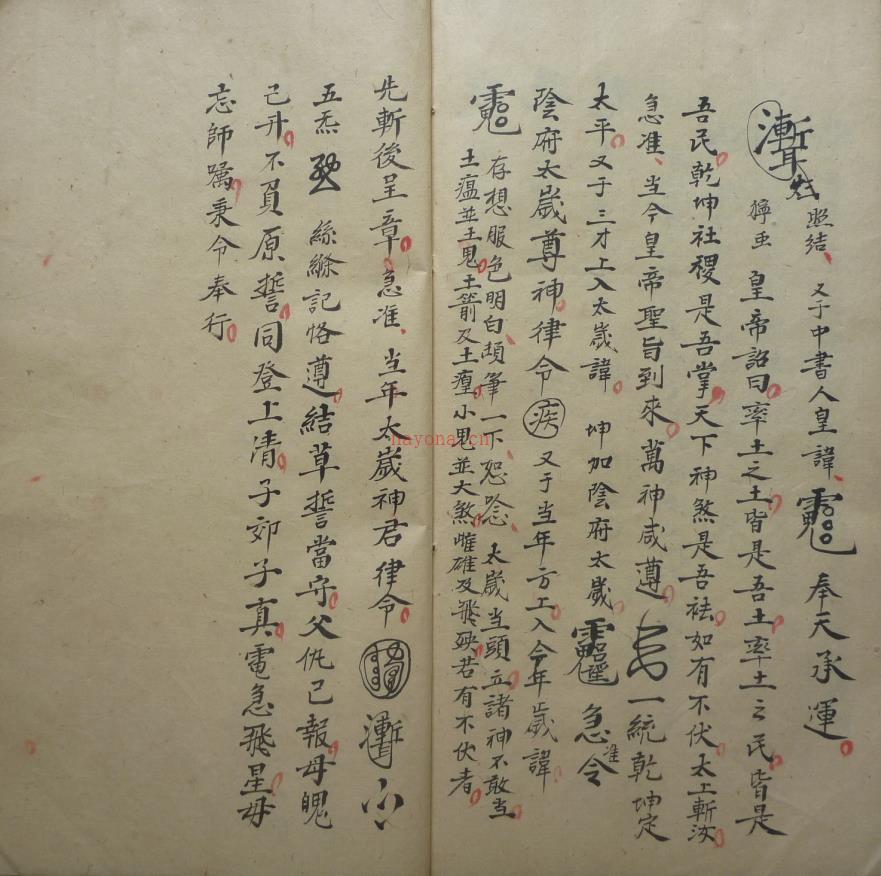 照結 又于中書人皇諱 奉天承運
皇帝詔曰率土之土皆是吾土率土之民皆是
吾民乾坤社稷是吾掌天下神煞是吾祛如有不伏太上斬汝
急准 当今皇帝聖旨到來萬神咸遵 一統乾坤定
太平又于三才上入太歲諱 坤加陰府太歲 急准令
陰府太歲尊神律令 疾 又于当年方上入今年歲諱
存想服色明白 筆一下恕唸 太歲当頭立諸神不敢当
土瘟並土鬼土箭及土瘟小鬼並大煞 及飛殃若有不伏者
先斬後呈章急准 当年太歲神君律令
五炁 絲縧記恪遵結草誓當守父仇已報母媿
已升不負原誓同登上清子郊子真電急飛星毋
忘師囑秉令奉行
hayona.cn